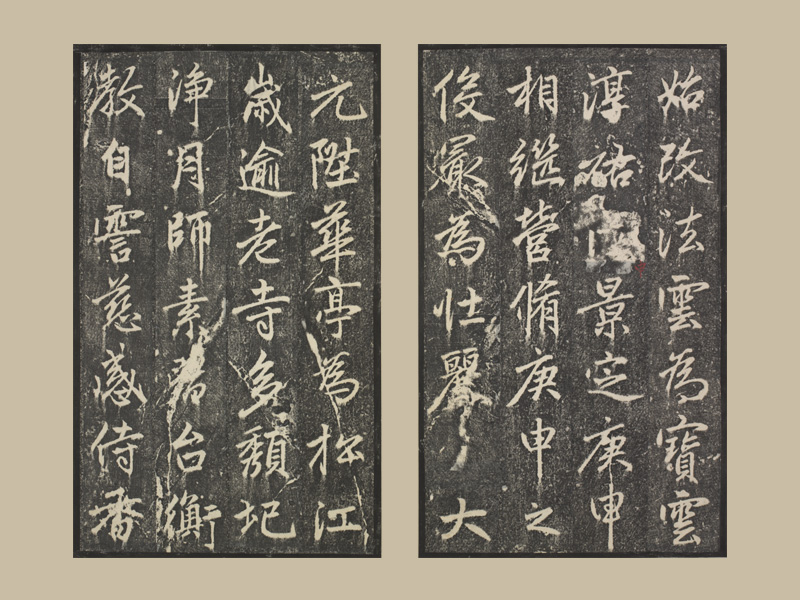 始改法雲為寶雲
淳祐景定庚申
相继營脩庚申之
後㝡為壯麗大
元陞華亭為松江
歲逾老寺多頹圮
淨月師素台衡
教自詈慈感侍香